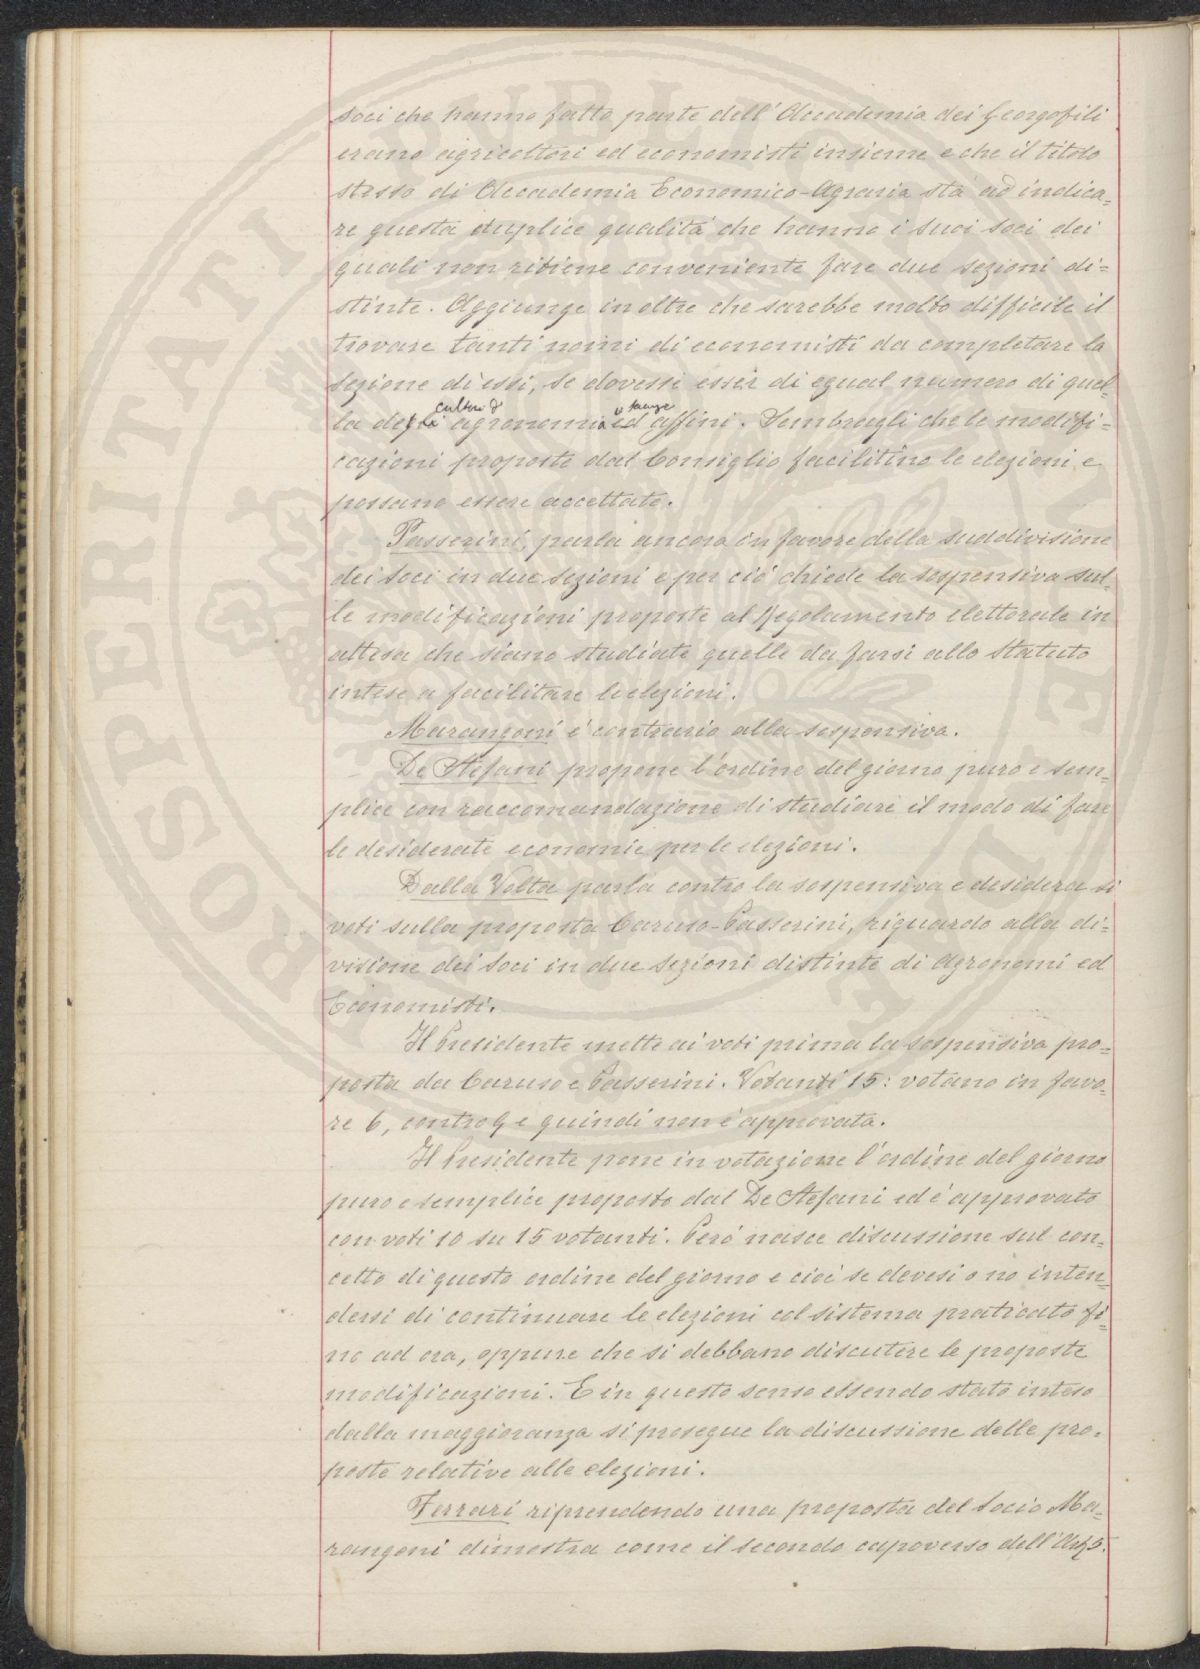 soci che hanno fatto parte dell'Accademia dei Georgofili
erano agricoltori ed economisti insieme e che il titolo
stesso di Accademia Economico-Agraria sta ad indica=
re questa duplice qualità che hanno i suoi soci dei
quali non ritiene conveniente fare due sezioni di=
stinte. Aggiunge inoltre che sarebbe molto difficile il
trovare tanti nomi di economisti da completare la
sezione di essi, se dovessi esser di egual numero di quel=
la degli cultori d' agronomia ed affini. Sembragli che le modifi=
cazioni proposte dal Consiglio facilitino le elezioni e
possano essere accettate.
Passerini, parla ancora in favore della suddivisione
dei soci in due sezioni e per ciò chiede la sospensiva sul=
le modificazioni proposte al Regolamento elettorale in
attesa che siano studiate quelle da farsi allo Statuto
intese a facilitare le elezioni.
Marangoni è contrario alla sospensiva.
De Stefani propone l'ordine del giorno puro e sem=
plice con raccomandazione di studiare il modo di fare
le desiderate economie per le elezioni.
Dalla Volta parla contro la sospensiva e desidera si
voti sulla proposta Caruso-Passerini, riguardo alla di=
visione dei soci in due sezioni distinte di Agronomi ed
Economisti.
Il Presidente mette ai voti prima la sospensiva pro=
posta da Caruso e Passerini. Votanti 15: votano in favo=
re 6, contro 9 e quindi non è approvata.
Il Presidente pone in votazione l'ordine del giorno
puro e semplice proposto dal De Stefani ed è approvato
con voti 10 su 15 votanti. Però nasce discussione sul con=
cetto di questo ordine del giorno e cioè se devesi o no inten=
dersi di continuare le elezioni col sistema praticato fi=
no ad ora, oppure che si debbano discutere le proposte
modificazioni. E in questo senso essendo stato inteso
dalla maggioranza si prosegue la discussione delle pro=
poste relative alle elezioni.
Ferrari riprendendo una proposta del Socio Ma=
rangoni dimostra come il secondo capoverso dell'Art 5.
PROSPERITATI PUBLICAE